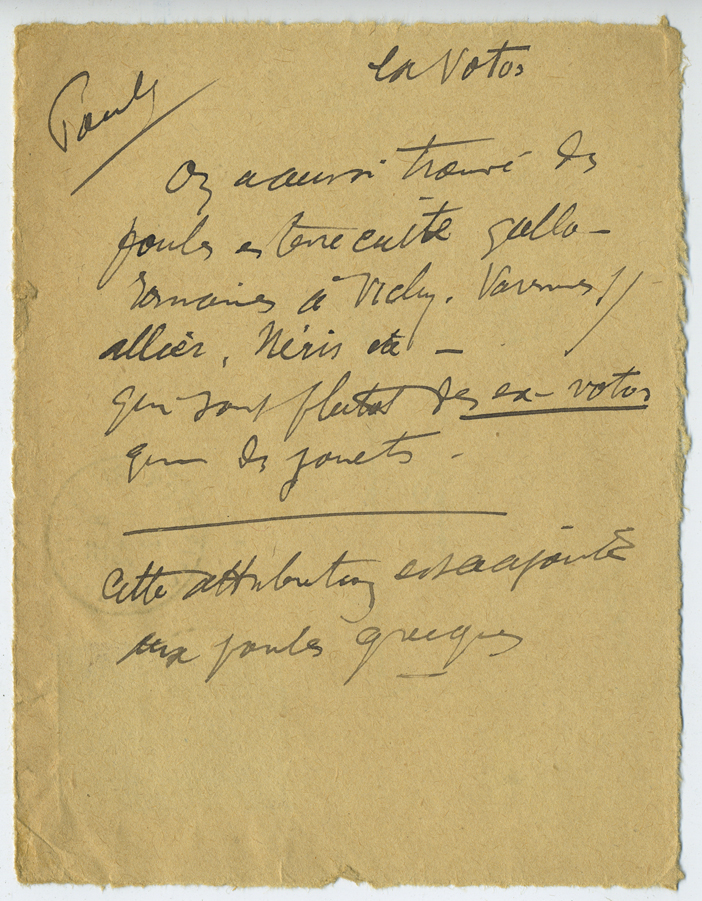 Poule
ex Votos
On a aussi trouvé des
poules en terre cuite gallo-
romaines à Vichy. Varennes s/
allier, Néris etc –
qui sont plutot des ex-votos
que des jouets –
Cette attribution est a ajouter
aux poules grecques